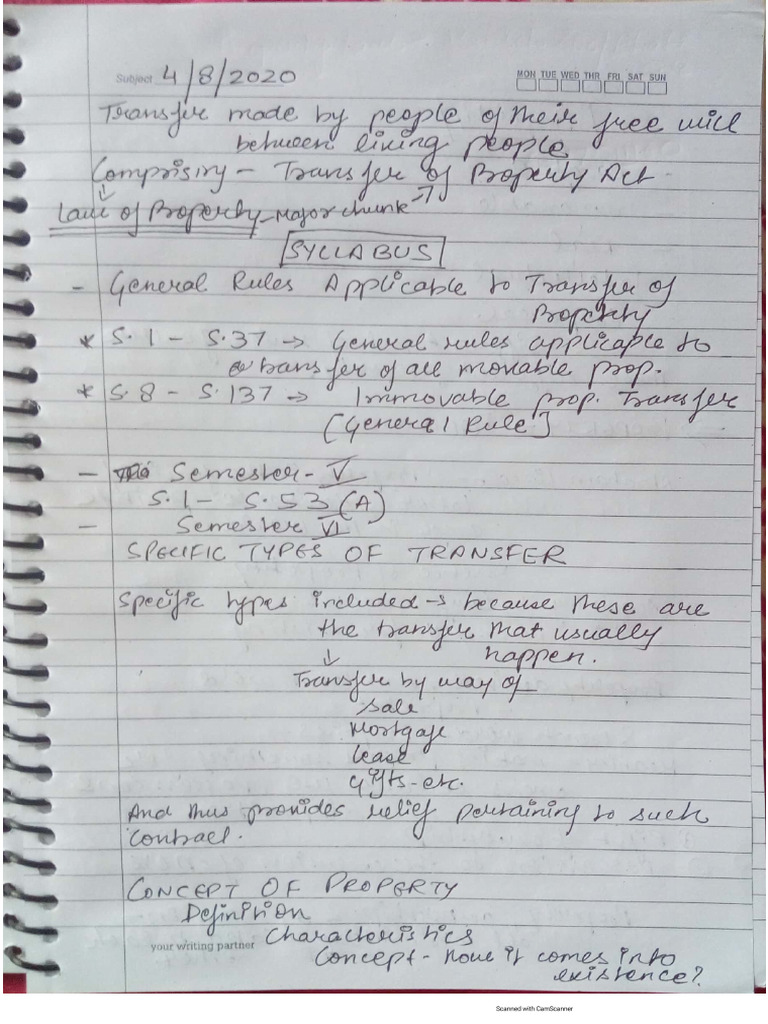 Subject 4/8/2020 MON TUE WED THR FRI SAT SUN
Transfer made by people of their free will
between living people
Comprising - Transfer of Property Act
Law of Property - Major chunk
SYLLABUS
- General Rules Applicable to Transfer of
Property
* S. 1 - S. 37 → General rules applicable to
transfer of all movable prop.
* S. 8 - S. 137 → Immovable prop. Transfer
[General Rule]
- Semester - V
S. 1 - S. 53 (A)
- Semester VI
SPECIFIC TYPES OF TRANSFER
Specific types included → because these are
the transfer that usually
↓ happen.
Transfer by way of
Sale
Mortgage
Lease
Gifts - etc.
And thus provides relief pertaining to such
contract.
CONCEPT OF PROPERTY
Definition
your writing partner Characteristics
Concept - How it comes into
existence?
Scanned with CamScanner